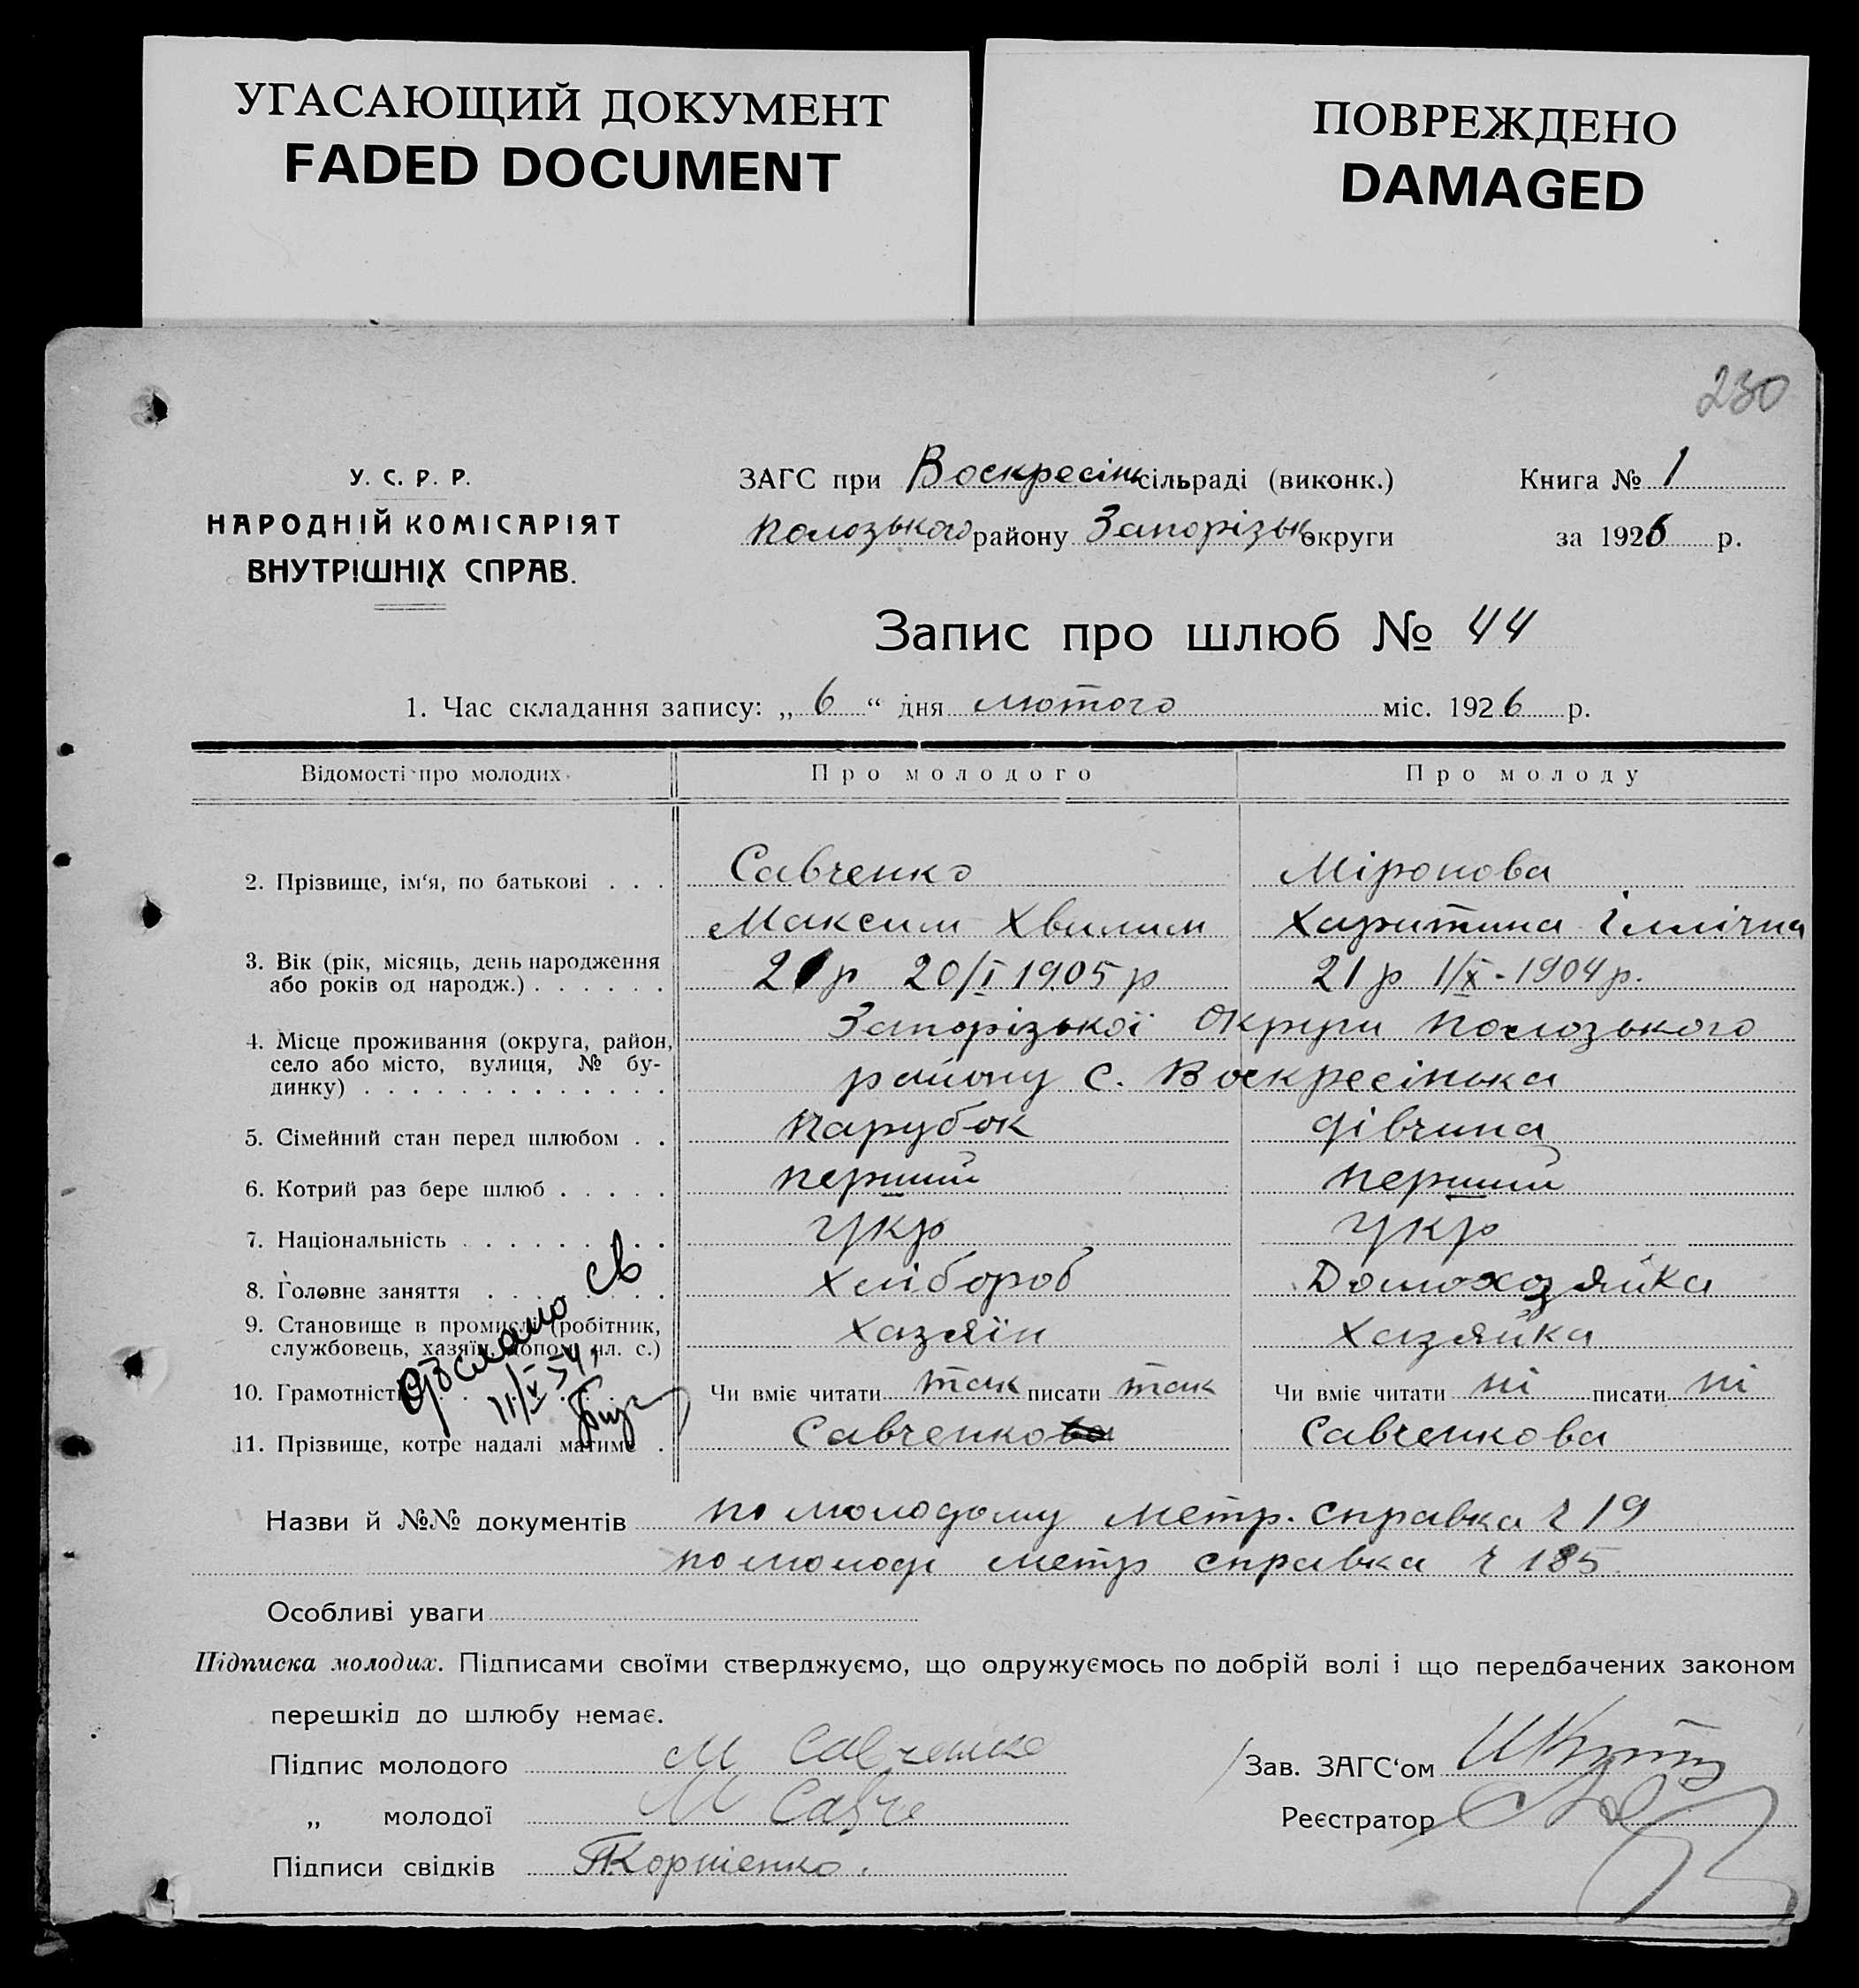 УГАСАЮЩИЙ ДОКУМЕНТ
FADED DOCUMENT
ПОВРЕЖДЕНО
DAMAGED
230
У. С. Р. Р.
НАРОДНІЙ КОМІСАРІЯТ
ВНУТРІШНІХ СПРАВ.
ЗАГС при Воскресінк сільраді (виконк.)
Полозького району Запорізьк округи
Книга № 1
за 1926 р.
Запис про шлюб № 44
1. Час складання запису: „ 6 “ дня лютого міс. 1926 р.
Відомості про молодих Про молодого Про молоду
2. Прізвище, ім‘я, по батькові . . . Савченко Міронова
Максим Хвилим Харитина Іллічна
3. Вік (рік, місяць, день народження або років од народж.) . . . . . . 21 р 20/I 1905 р 21 р 1/X - 1904 р.
4. Місце проживання (округа, район, село або місто, вулиця, № будинку) . . . . . . . . . . . . . Запорізької Округи Пологзького
району с. Воскресінька
5. Сімейний стан перед шлюбом . . Парубок дівчина
6. Котрий раз бере шлюб . . . . . перший перший
7. Національність . . . . . . . . . укр укр
8. Головне заняття . . . . . . . . Хлібороб Домохозяйка
9. Становище в промислі (робітник, службовець, хазяїн, допом. чл. с.) Хазяїн Хазяйка
10. Грамотність Чи вміє читати так писати так Чи вміє читати ні писати ні
11. Прізвище, котре надалі матиме . Савченкова Савченкова
Одіслано св
11/V 34
Назви й №№ документів по молодому метр. справка ч 19
по молоді метр справка ч 185
Особливі уваги
Підписка молодих. Підписами своїми стверджуємо, що одружуємось по добрій волі і що передбачених законом
перешкід до шлюбу немає.
Підпис молодого М Савченко
„ молодої М Савче
Підписи свідків Корниенко.
Зав. ЗАГС‘ом
Реєстратор